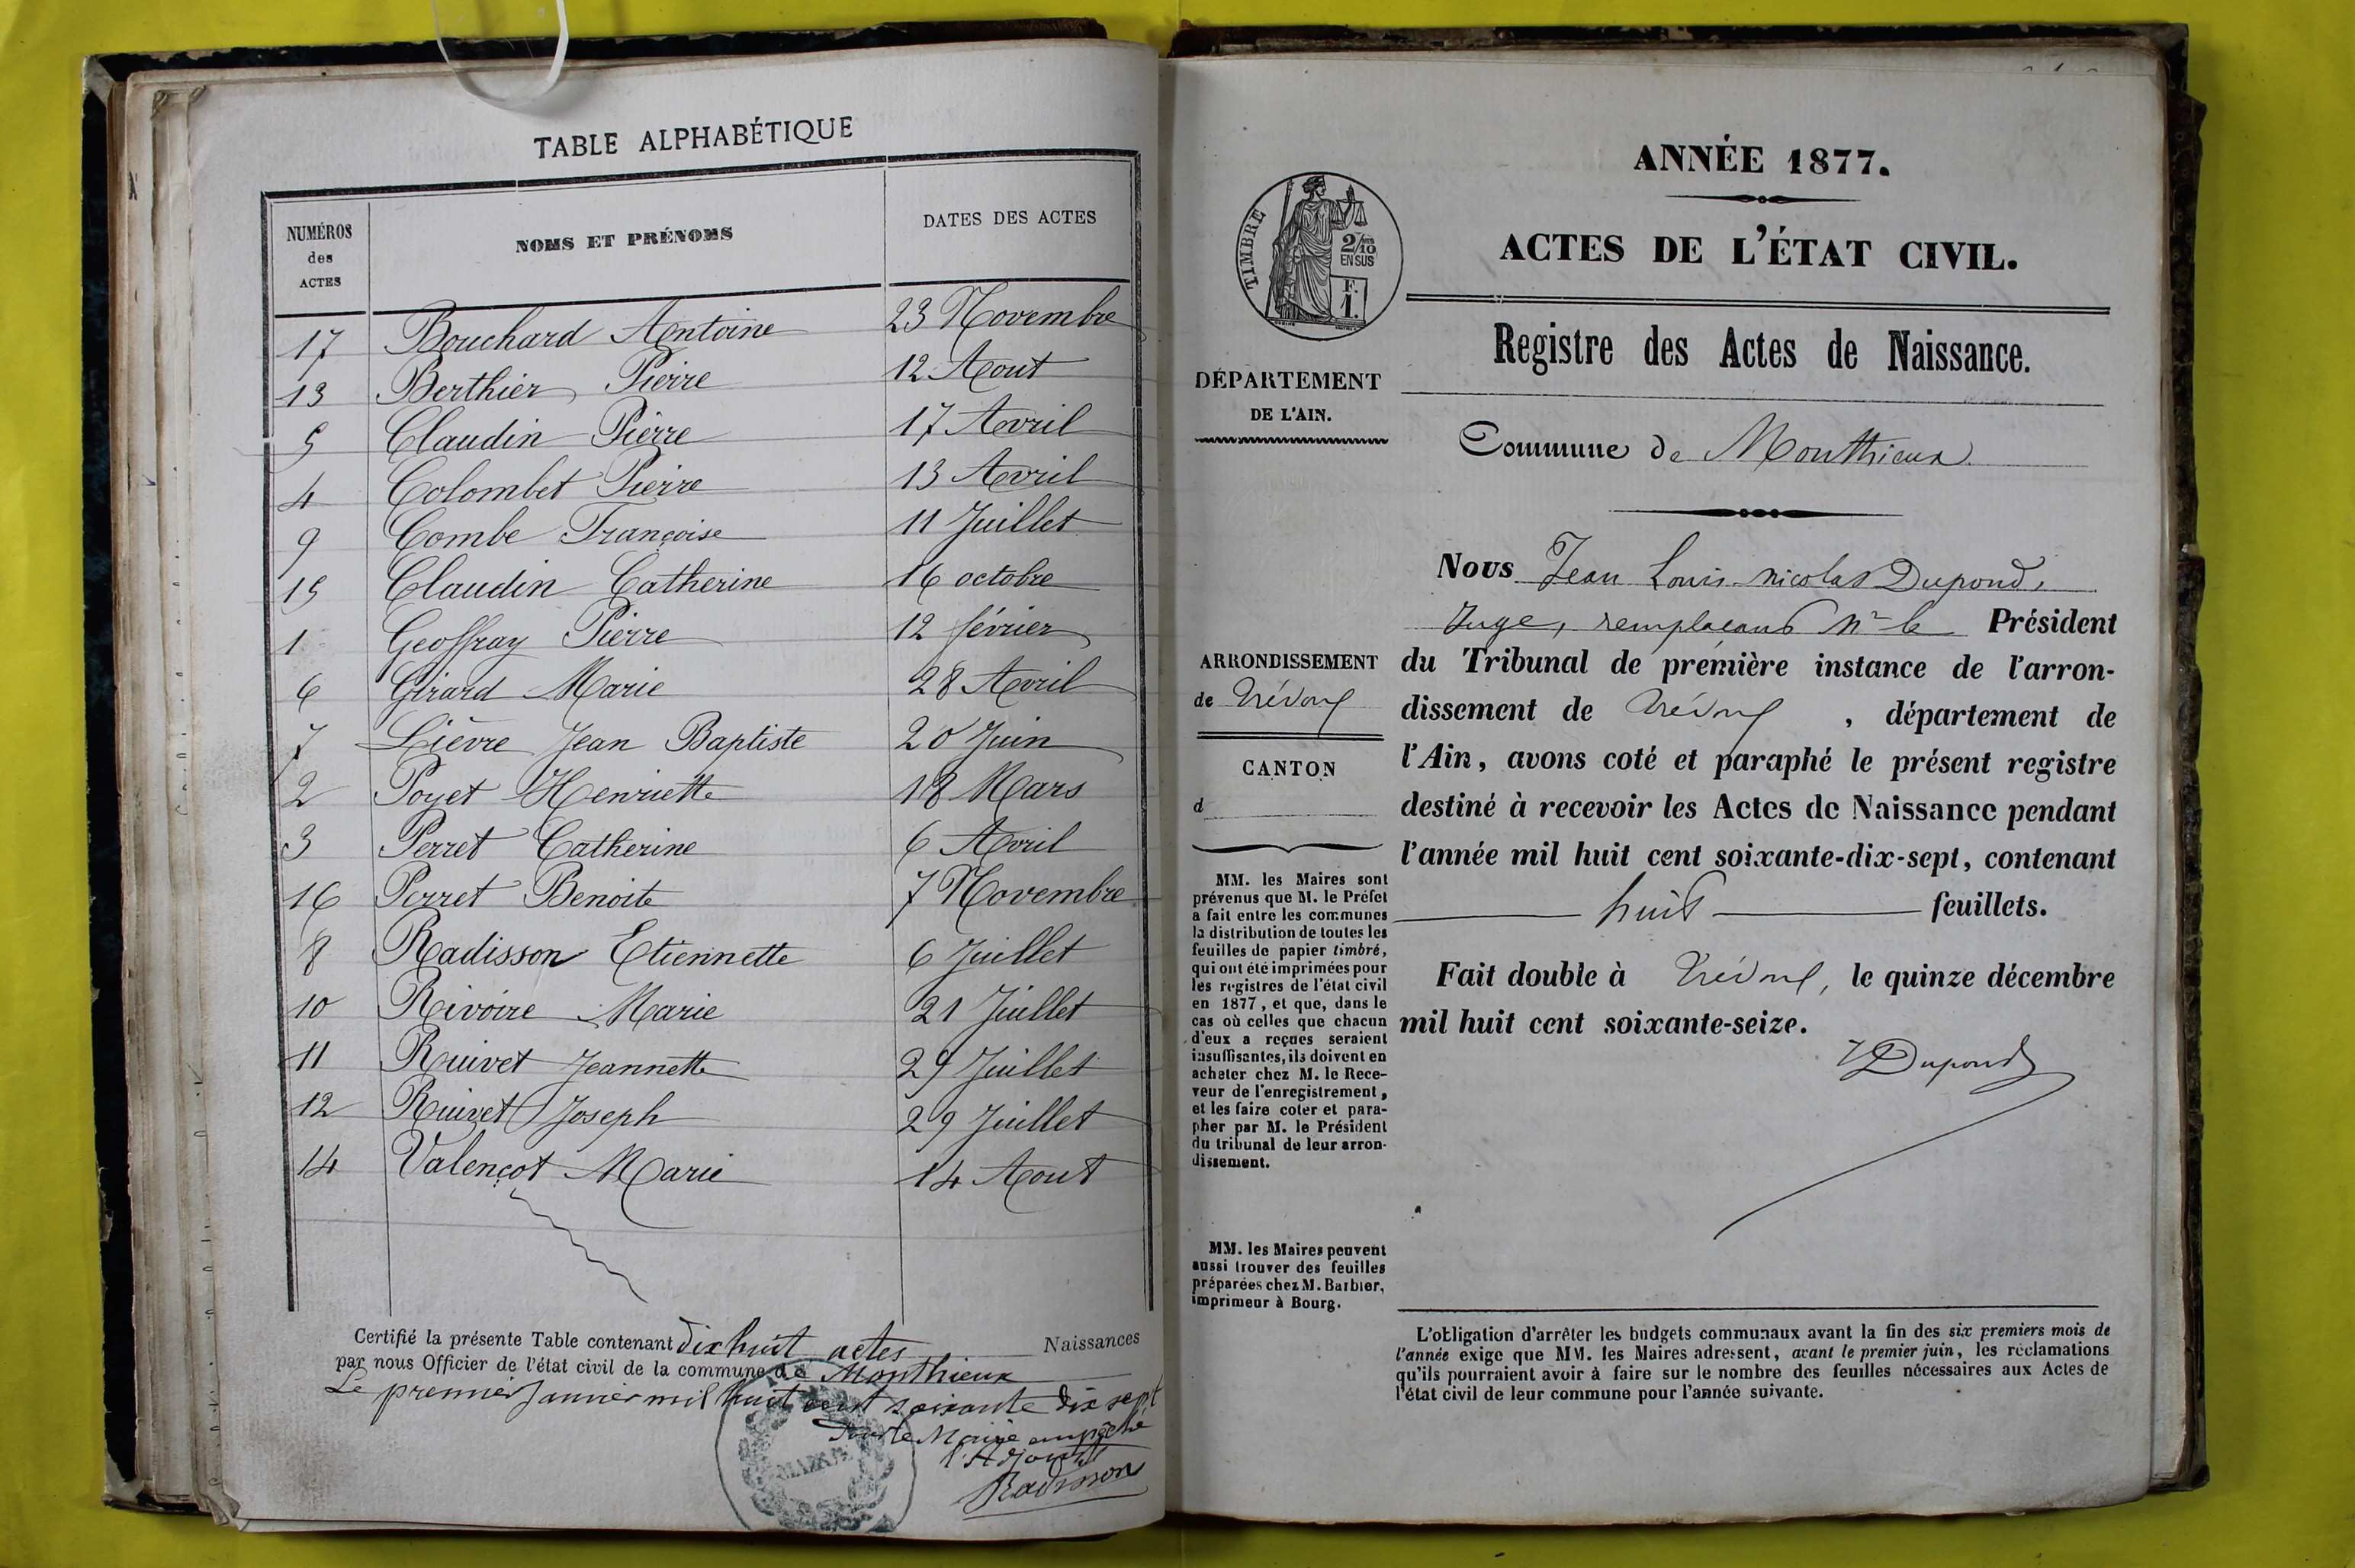 TABLE ALPHABÉTIQUE
NUMÉROS des ACTES NOMS ET PRÉNOMS DATES DES ACTES
17 Bouchard Antoine 23 Novembre
13 Berthier Pierre 12 Aout
5 Claudin Pierre 17 Avril
4 Colombet Pierre 13 Avril
9 Combe Françoise 11 Juillet
15 Claudin Catherine 16 octobre
1 Geoffray Pierre 12 février
6 Girard Marie 28 Avril
7 Lièvre Jean Baptiste 20 Juin
2 Poyet Henriette 18 Mars
3 Perret Catherine 6 Avril
16 Perret Benoite 7 Novembre
8 Radisson Etiennette 6 Juillet
10 Rivoire Marie 21 Juillet
11 Ruivet Jeannette 29 Juillet
12 Ruivet Joseph 29 Juillet
14 Valençot Marie 14 Aout
Certifié la présente Table contenant dix huit actes Naissances
par nous Officier de l'état civil de la commune de Monthieux
Le premier Janvier mil huit cent soixante dix sept
Pour le Maire empêché
l'Adjoint
Radisson
MAIRIE
ANNÉE 1877.
ACTES DE L'ÉTAT CIVIL.
TIMBRE
2/10
EN SUS
F.
1.
Registre des Actes de Naissance.
DÉPARTEMENT
DE L'AIN.
Commune de Monthieux
Nous Jean Louis Nicolas Dupond,
Juge, remplaçant Mr le Président
du Tribunal de première instance de l'arron-
dissement de Trévoux, département de
l'Ain, avons coté et paraphé le présent registre
destiné à recevoir les Actes de Naissance pendant
l'année mil huit cent soixante-dix-sept, contenant
huit feuillets.
Fait double à Trévoux, le quinze décembre
mil huit cent soixante-seize.
Dupond
ARRONDISSEMENT
de Trévoux
CANTON
d
MM. les Maires sont
prévenus que M. le Préfet
a fait entre les communes
la distribution de toutes les
feuilles de papier timbré,
qui ont été imprimées pour
les registres de l'état civil
en 1877, et que, dans le
cas où celles que chacun
d'eux a reçues seraient
insuffisantes, ils doivent en
acheter chez M. le Rece-
veur de l'enregistrement,
et les faire coter et para-
pher par M. le Président
du tribunal de leur arron-
dissement.
MM. les Maires peuvent
aussi trouver des feuilles
préparées chez M. Barbier,
imprimeur à Bourg.
L'obligation d'arrêter les budgets communaux avant la fin des six premiers mois de
l'année exige que MM. les Maires adressent, avant le premier juin, les réclamations
qu'ils pourraient avoir à faire sur le nombre des feuilles nécessaires aux Actes de
l'état civil de leur commune pour l'année suivante.